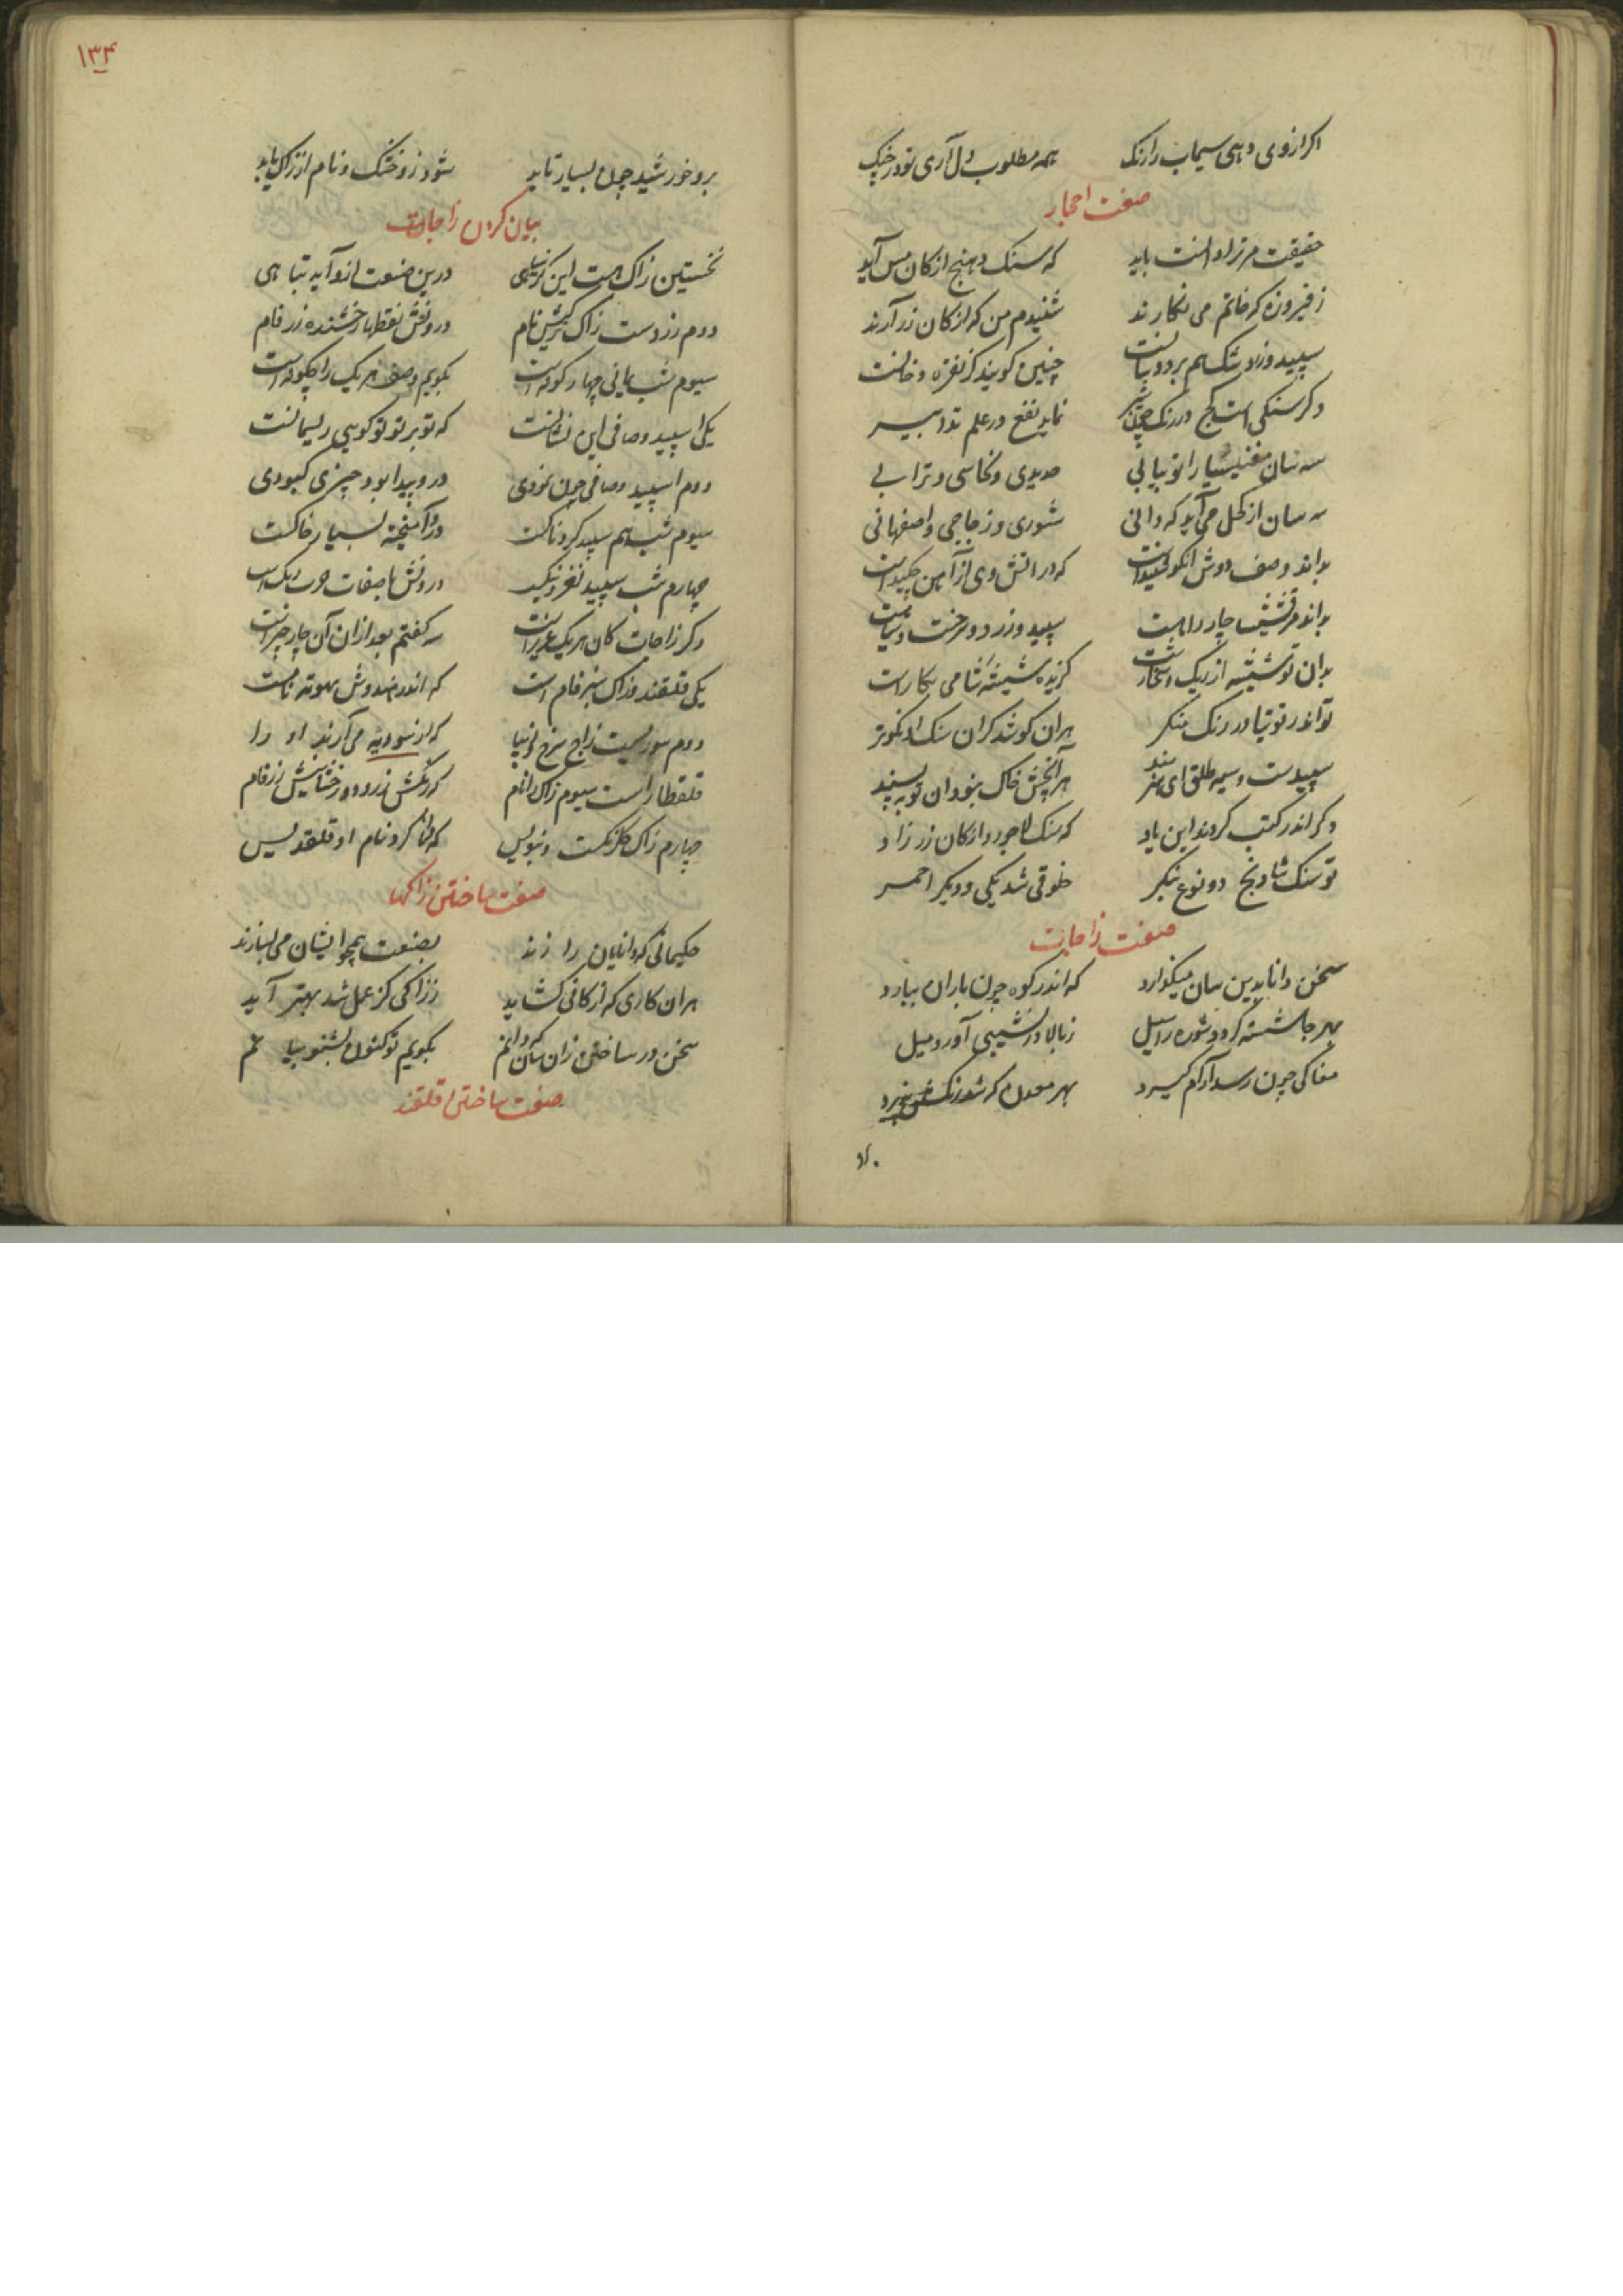 اکر ازوی دهی سیماب را رنک همه مطلوب دل آری تو در چنک
صفت احجار
حقیقت مر ترا دانست باید که سنک دهنج از کان مس آید
ز فیروزه که خاتم می نکارند شنیدم من که از کان زر آرند
سپید وزرد شک هم بر دو سانست چنین کویند کز نقره دخانست
وکر سنکی است کج در رنک چون شیر نماید نفع در علم تدابیر
سه سان مغنیسیا را تو بیابی حدیدی ونحاسی وترابی
سه سان از کحل می آید که دانی شوری وزجاجی واصفهانی
بداند وصف دوش انکو که در اتش وی از آهن چکیداست
بداند مرقشیشا چار سپید وزرد وسرخست
بدان تو شیشه از ریک کزیده شیشهٔ شامی بکار است
تو اندر توتیا در رنک منکر هران کوشد کران سنک او نکوتر
سپیدست وسیه طلق ای هنرمند هر آنچش خاک نبود آن تو بپسند
وکر اندر کتب کردند این یاد که سنک لاجورد از کان زر زاد
تو سنک شادنج دو نوع بنکر خلوقی شد یکی و دیکر احمر
صفت زاجات
سخن دانا بدین سان میکذارد که اندر کوه چون باران ببارد
بهر جا شسته کردد شوره را سیل ز بالا در نشیبی آورد میل
مغاکی چون رسد آرام کیرد بهر معدن که شد رنکش پذیرد
۱۳۴
برو خورشید چون بسیار تابد شود زو خشک ونام از زاک یابد
بیان کردن زاجات
نخستین زاک هست این درین صنعت ازو آید تباهی
دوم زردست زاک درونش نقطها رخشنده زر فام
سیوم شب یمانی چهار کونه است بکویم وصف هر یک را چکونه است
یکی اسپید وصافی این نشانست که تو بر تو تو کویی ریسمانست
دوم اسپید وصافی چون نمودی درو پیدا بود چیزی کبودی
سیوم شب هم سپید کردناکست درو آمیخته بسیار خاکست
چهارم شب سپید نغز ونیک درونش با صفات
وکر زاجات کان هر یک عزیزاست سه کفتم بعد ازان آن چار چیز است
یکی قلقند وزاک سبز فام است که اندر هندوش نام است
دوم سوریست زاج سرخ که از سوریه می آرند او را
قلقطار است سیوم زاک را نام که رنکش زرد ورخشانیش زر فام
چهارم زاک کلرنکست وبنویس که کرد نام او قلقدیس
صفت ساختن زاکها
حکیمانی که دانایان را زند بصنعت همچو ایشان می بسازند
هران کاری که از کانی کشاید ززاکی کز عمل شد بهتر آید
سخن در ساختن زان سان که دانم بکویم تو کنون بشنو بیانم
صفت ساختن قلقند